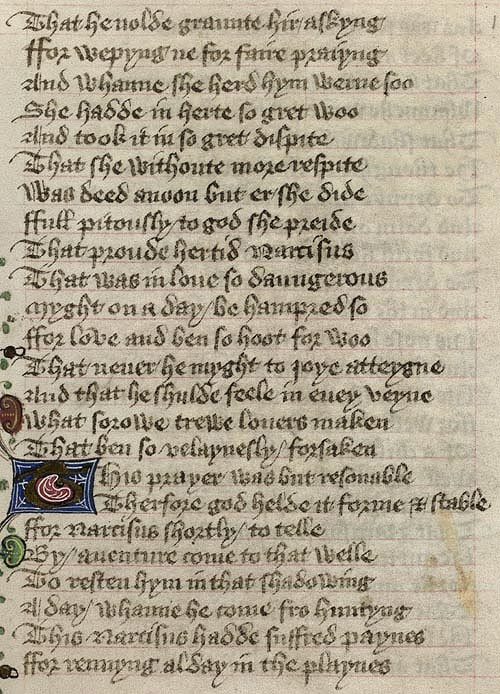 That he nolde graunte hir askyng
ffor wepyng ne for faire praiyng
And whanne she herd hym werne soo
She hadde in herte so gret woo
And took it in so gret dispite
That she withoute more respite
Was deed anoon but er she dide
ffull pitously / to god she preide
That proude hertid Narcisus
That was in loue so daungerous
Myght on a day / be hampred so
ffor love and ben so hoot for woo
That never he myght to joye atteygne
And that he shulde feele in euey veyne
What sorowe trewe lovers maken
That ben so velaynesly / forsaken
This prayer was but resonable
Therfore god helde it ferme & stable
ffor Narcisus shortly / to telle
By / auenture come to that welle
To resten hym in that shadowing
A day / whanne he come fro huntyng
This Narcisus hadde suffred paynes
ffor rennyng alday in the playnes